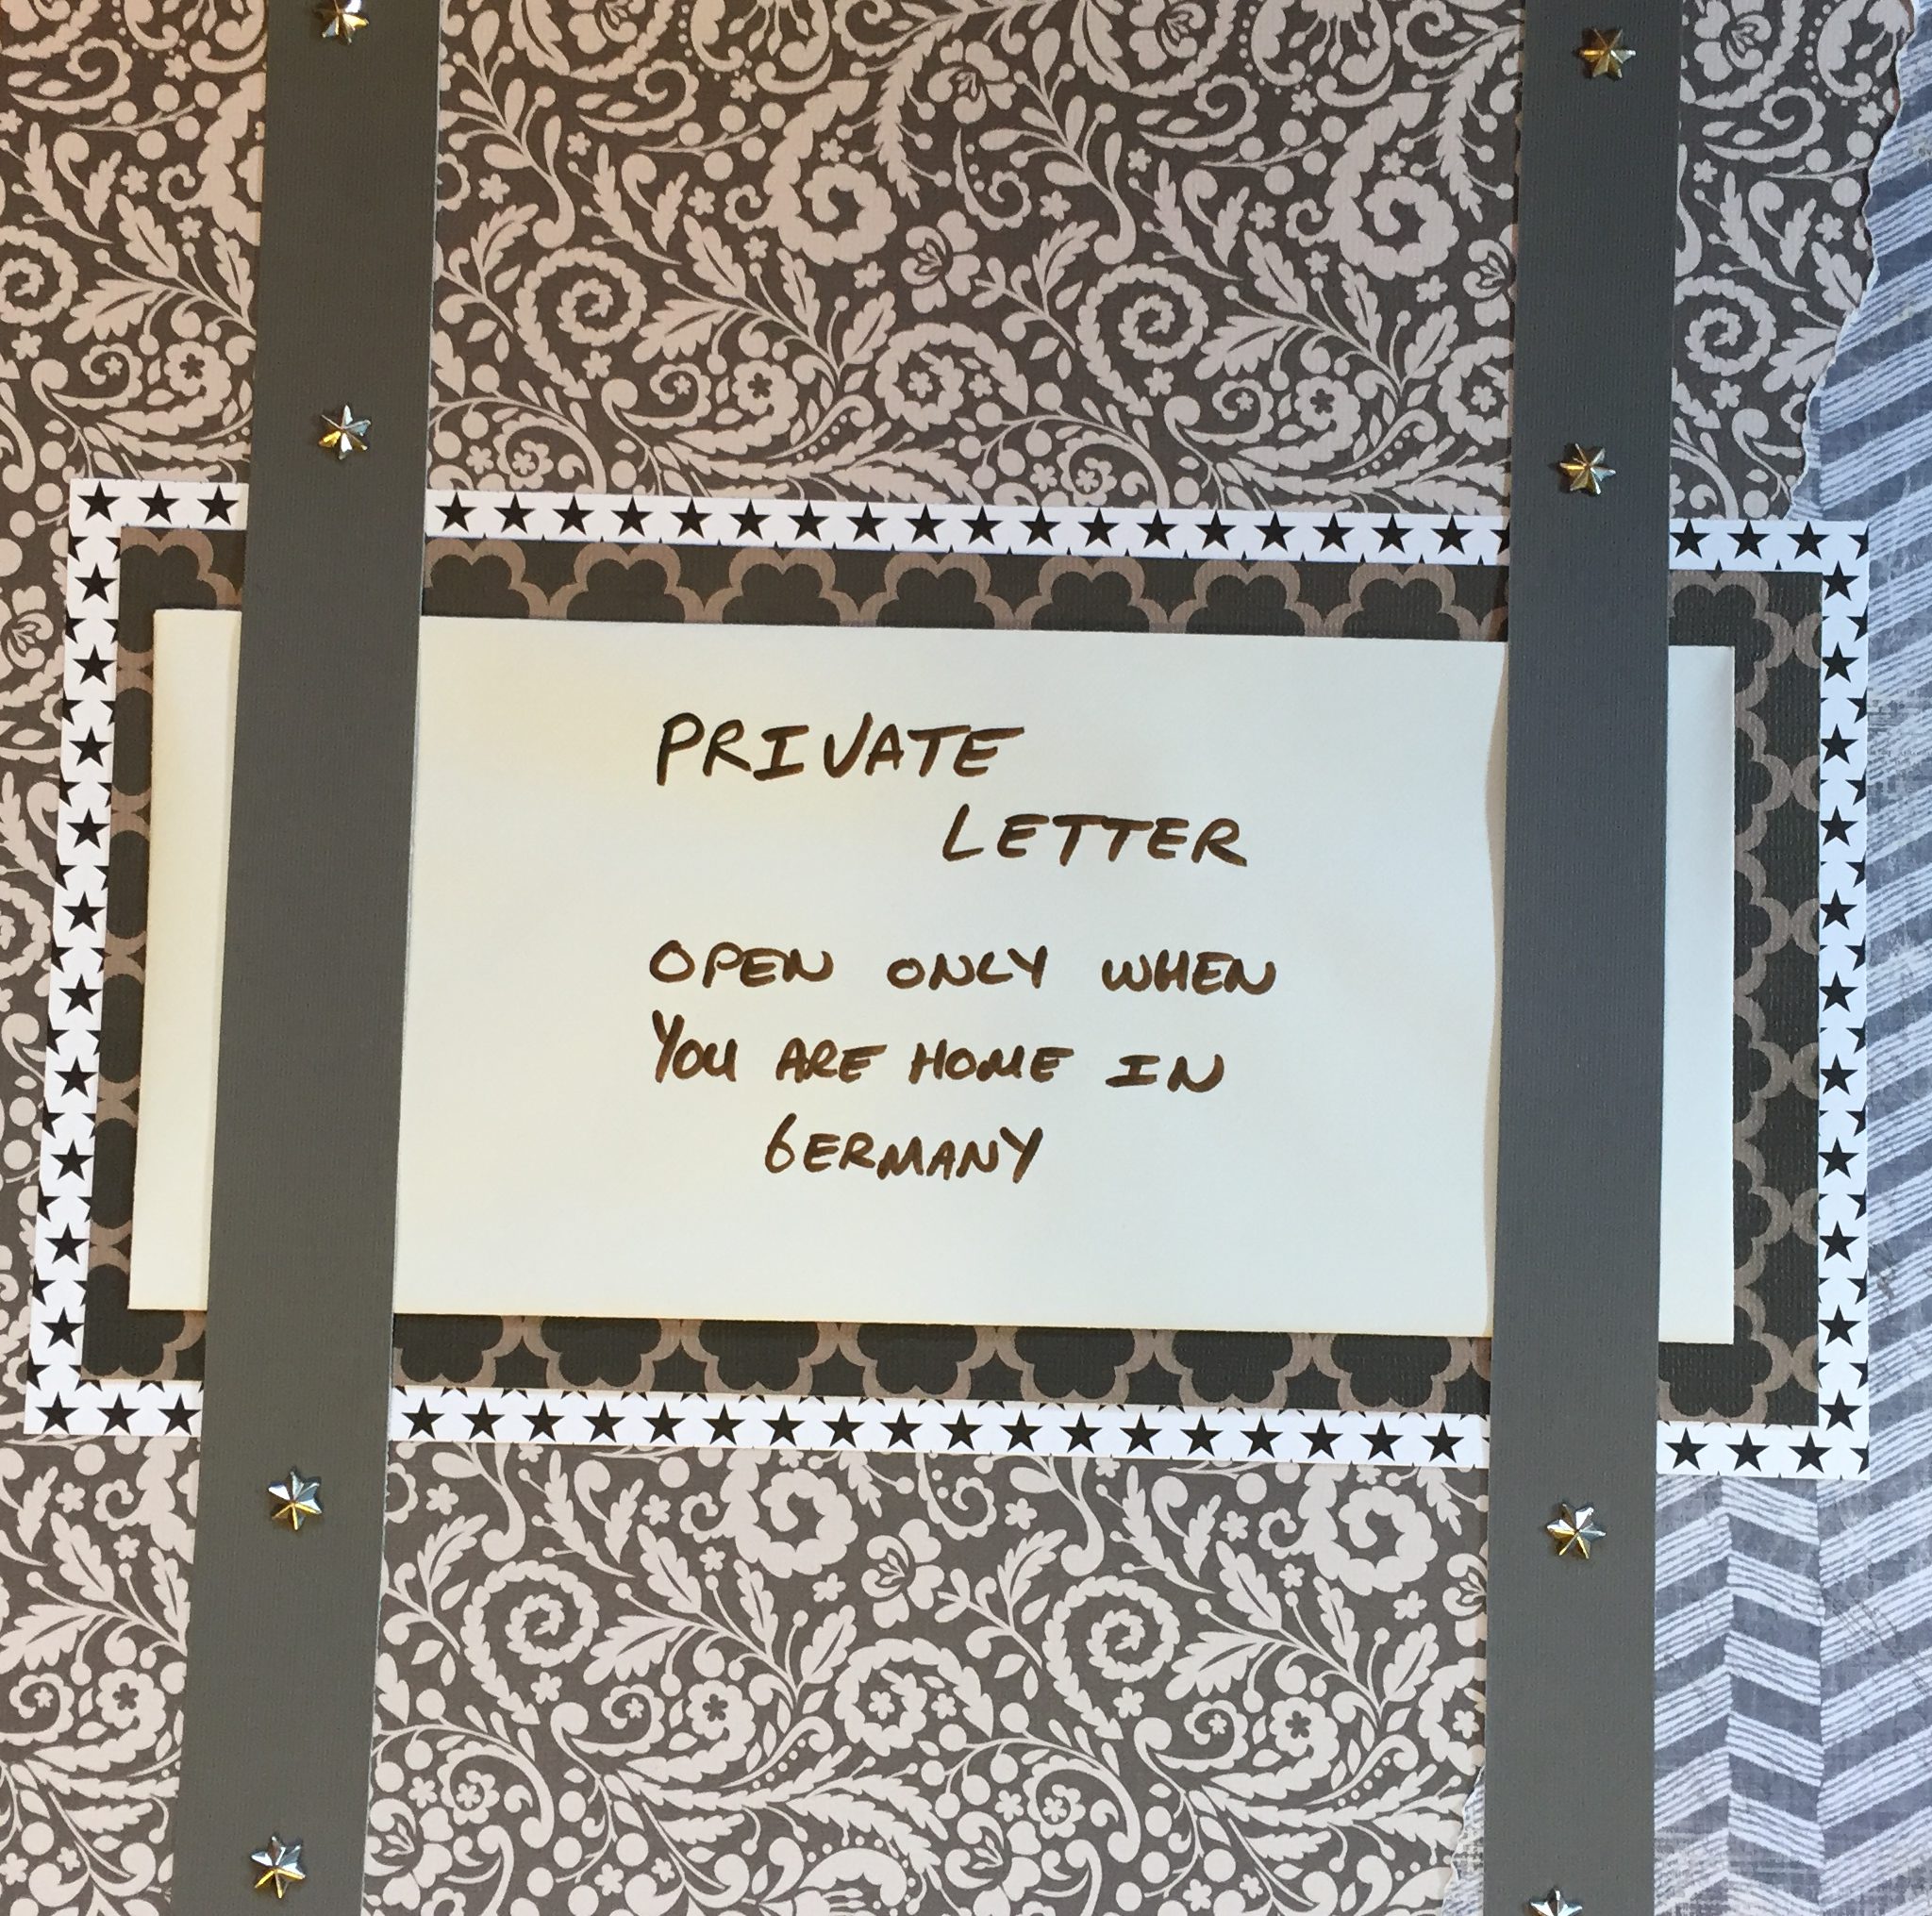 PRIVATE
LETTER
OPEN ONLY WHEN
YOU ARE HOME IN
GERMANY